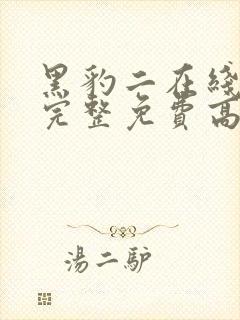 黑豹二在綫
完整免費高
湯二驴